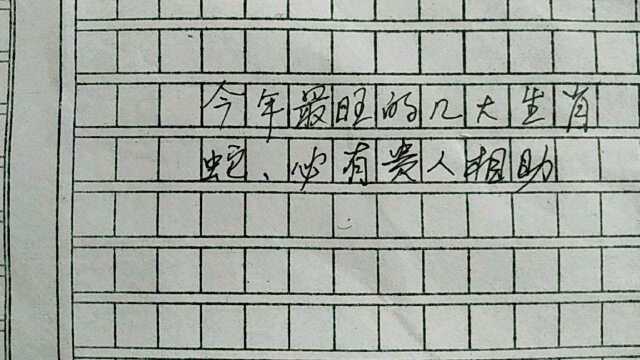 今年最旺的几大生肖
蛇、必有贵人相助